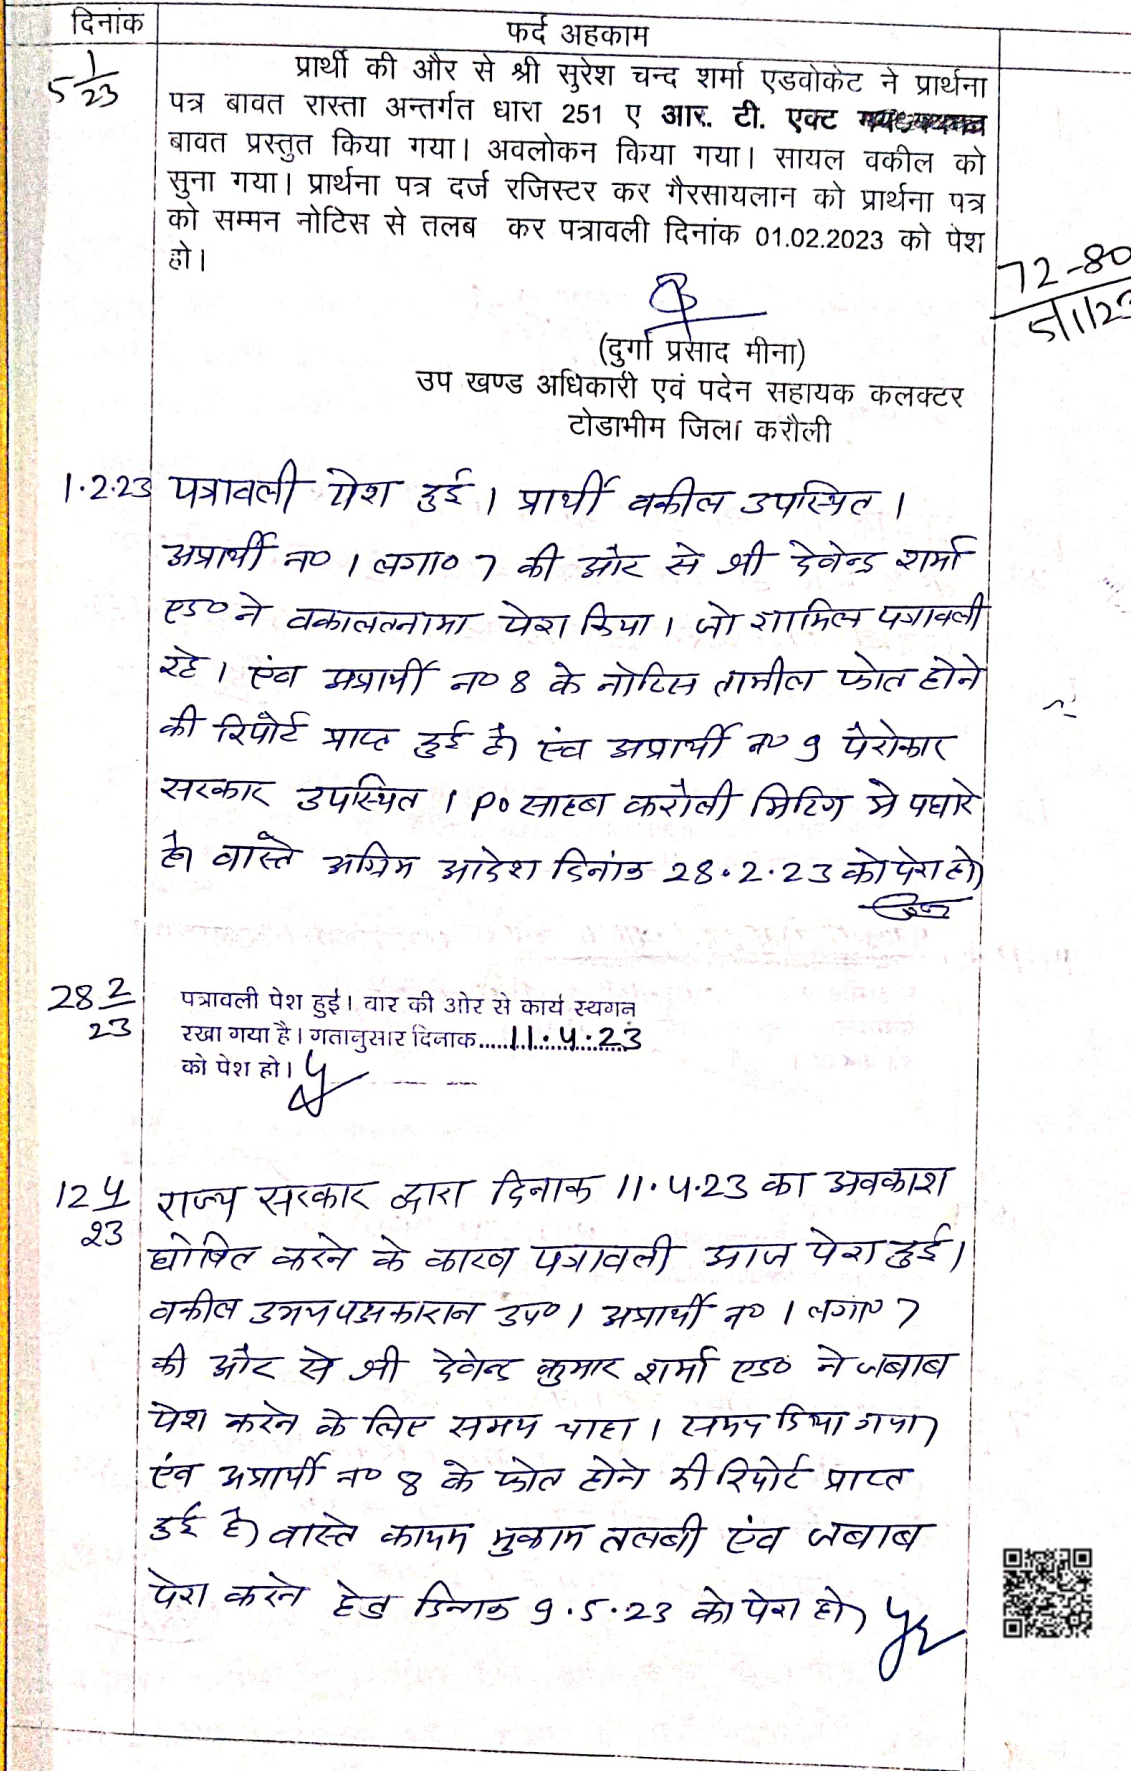 दिनांक
फर्द अहकाम
5 1/23
प्रार्थी की और से श्री सुरेश चन्द शर्मा एडवोकेट ने प्रार्थना
पत्र बावत रास्ता अन्तर्गत धारा 251 ए आर. टी. एक्ट
बावत प्रस्तुत किया गया। अवलोकन किया गया। सायल वकील को
सुना गया। प्रार्थना पत्र दर्ज रजिस्टर कर गैरसायलान को प्रार्थना पत्र
को सम्मन नोटिस से तलब कर पत्रावली दिनांक 01.02.2023 को पेश
हो।
72-80
5/1/23
(दुर्गा प्रसाद मीना)
उप खण्ड अधिकारी एवं पदेन सहायक कलक्टर
टोडाभीम जिला करौली
1.2.23 पत्रावली पेश हुई। प्रार्थी वकील उपस्थित।
अप्रार्थी न० 1 लगा० 7 की और से श्री देवेन्द्र शर्मा
एड० ने वकालतनामा पेश किया। जो शामिल पत्रावली
रहे। एंव अप्रार्थी न० 8 के नोटिस तामील फोत होने
की रिर्पोट प्राप्त हुई है। एंव अप्रार्थी न० 9 पैरोकार
सरकार उपस्थित। Po साहब करौली मिटिग मे पधारे
है। वास्ते अग्रिम आदेश दिनांक 28.2.23 को पेश हो।
28 2/23
पत्रावली पेश हुई। वार की ओर से कार्य स्थगन
रखा गया है। गतानुसार दिनाक.....11.4.23
को पेश हो।
12 4/23
राज्य सरकार द्वारा दिनाक 11.4.23 का अवकाश
घोषित करने के कारण पत्रावली आज पेश हुई।
वकील उभयपक्षकारान उप०। अप्रार्थी न० 1 लगा० 7
की और से श्री देवेन्द्र कुमार शर्मा एड० ने जबाब
पेश करने के लिए समय चाहा। समय दिया गया।
एंव अप्रार्थी न० 8 के फोत होने की रिपोर्ट प्राप्त
हुई है। वास्ते कायम मुकाम तलबी एंव जबाब
पेश करने हेतु दिनाक 9.5.23 को पेश हो।